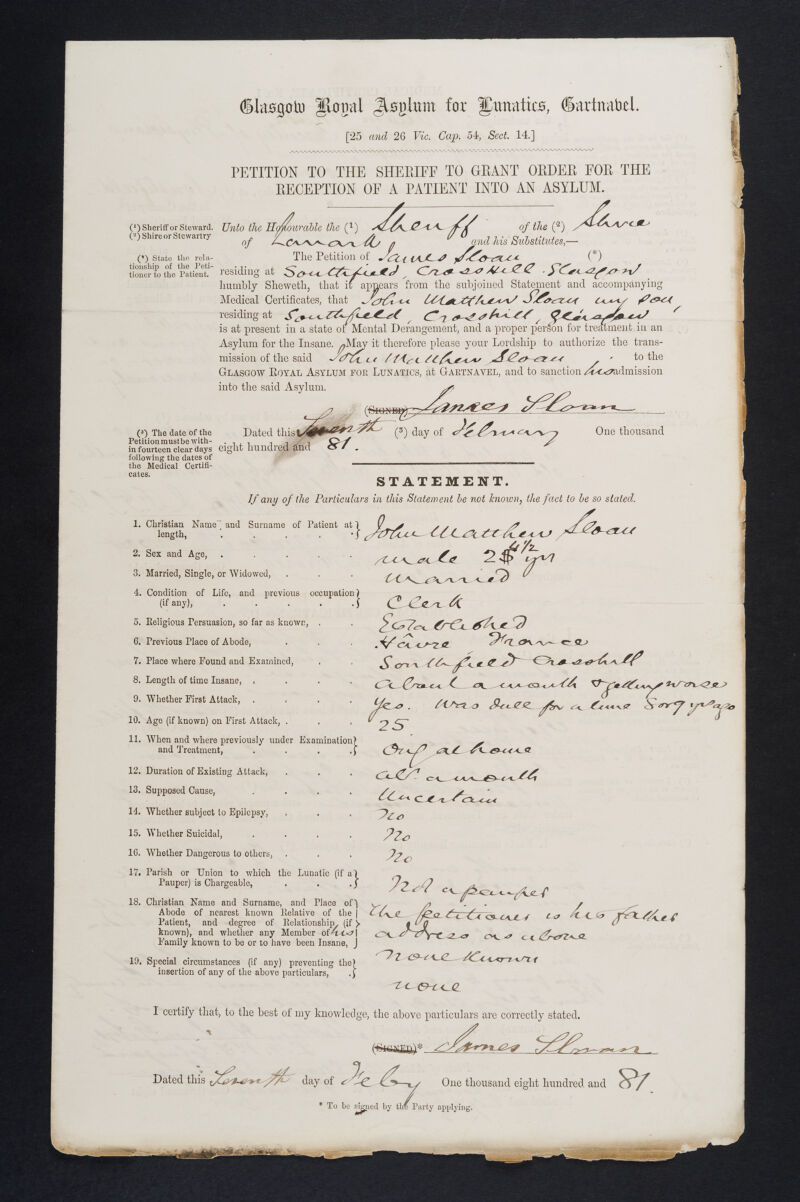 Glasgow Royal Asylum for Lunatics, Gartnabel.
[25 and 26 Vic. Cap. 54, Sect. 14.]
PETITION TO THE SHERIFF TO GRANT ORDER FOR THE
RECEPTION OF A PATIENT INTO AN ASYLUM.
(¹) Sheriff or Steward.
(²) Shire or Stewartry
Unto the Honourable the (¹) Sheriff of the (²) Shire
of Lanark and his Substitutes,—
(*) State the rela-
tionship of the Peti-
tioner to the Patient.
The Petition of James Sloan (*)
residing at Southfield, Crosshill Glasgow
humbly Sheweth, that it appears from the subjoined Statement and accompanying
Medical Certificates, that John Matthew Sloan my son,
residing at Southfield, Crosshill, Glasgow
is at present in a state of Mental Derangement, and a proper person for treatment in an
Asylum for the Insane. May it therefore please your Lordship to authorize the trans-
mission of the said John Matthew Sloan to the
GLASGOW ROYAL ASYLUM FOR LUNATICS, at GARTNAVEL, and to sanction his admission
into the said Asylum.
(SIGNED) James Sloan
(³) The date of the
Petition must be with-
in fourteen clear days
following the dates of
the Medical Certifi-
cates.
Dated this Seventh (³) day of February One thousand
eight hundred and 81.
STATEMENT.
If any of the Particulars in this Statement be not known, the fact to be so stated.
1. Christian Name and Surname of Patient at
length, John Matthew Sloan
2. Sex and Age, male 24½ yrs
3. Married, Single, or Widowed, Married
4. Condition of Life, and previous occupation
(if any), Clerk
5. Religious Persuasion, so far as known, Established
6. Previous Place of Abode, Hâvre, France
7. Place where Found and Examined, Southfield Crosshill
8. Length of time Insane, About a month & getting worse
9. Whether First Attack, Yes. Was dull for a time 8 or 9 yrs ago
10. Age (if known) on First Attack, 25
11. When and where previously under Examination
and Treatment, Only at home
12. Duration of Existing Attack, abt. a month
13. Supposed Cause, Uncertain
14. Whether subject to Epilepsy, No
15. Whether Suicidal, No
16. Whether Dangerous to others, No
17. Parish or Union to which the Lunatic (if a
Pauper) is Chargeable, Not a pauper
18. Christian Name and Surname, and Place of
Abode of nearest known Relative of the
Patient, and degree of Relationship (if
known), and whether any Member of his
Family known to be or to have been Insane,
The petitioner is his father
address as above
none known
19. Special circumstances (if any) preventing the
insertion of any of the above particulars,
none
I certify that, to the best of my knowledge, the above particulars are correctly stated.
(SIGNED)* James Sloan
Dated this Seventh day of Feby One thousand eight hundred and 81.
* To be signed by the Party applying.